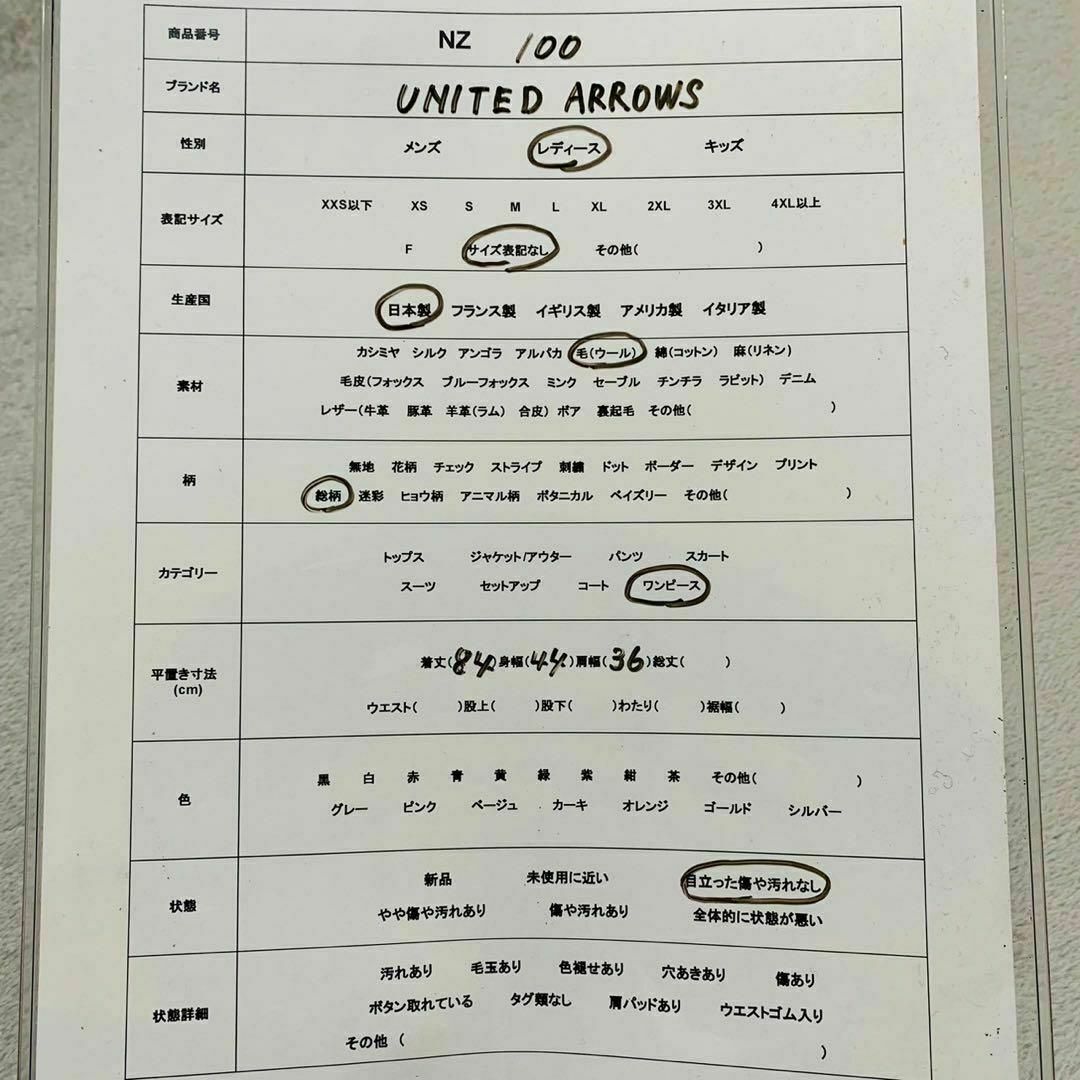 商品番号 NZ 100
ブランド名 UNITED ARROWS
性別 メンズ レディース キッズ
XXS以下 XS S M L XL 2XL 3XL 4XL以上
表記サイズ
F サイズ表記なし その他( )
生産国 日本製 フランス製 イギリス製 アメリカ製 イタリア製
カシミヤ シルク アンゴラ アルパカ 毛(ウール) 綿(コットン) 麻(リネン)
素材 毛皮(フォックス ブルーフォックス ミンク セーブル チンチラ ラビット) デニム
レザー(牛革 豚革 羊革(ラム) 合皮) ボア 裏起毛 その他( )
無地 花柄 チェック ストライプ 刺繍 ドット ボーダー デザイン プリント
柄
総柄 迷彩 ヒョウ柄 アニマル柄 ボタニカル ペイズリー その他( )
トップス ジャケット/アウター パンツ スカート
カテゴリー
スーツ セットアップ コート ワンピース
着丈(84)身幅(44)肩幅(36)総丈( )
平置き寸法
(cm)
ウエスト( )股上( )股下( )わたり( )裾幅( )
黒 白 赤 青 黄 緑 紫 紺 茶 その他( )
色
グレー ピンク ベージュ カーキ オレンジ ゴールド シルバー
新品 未使用に近い 目立った傷や汚れなし
状態
やや傷や汚れあり 傷や汚れあり 全体的に状態が悪い
汚れあり 毛玉あり 色褪せあり 穴あきあり 傷あり
状態詳細 ボタン取れている タグ類なし 肩パッドあり ウエストゴム入り
その他 ( )